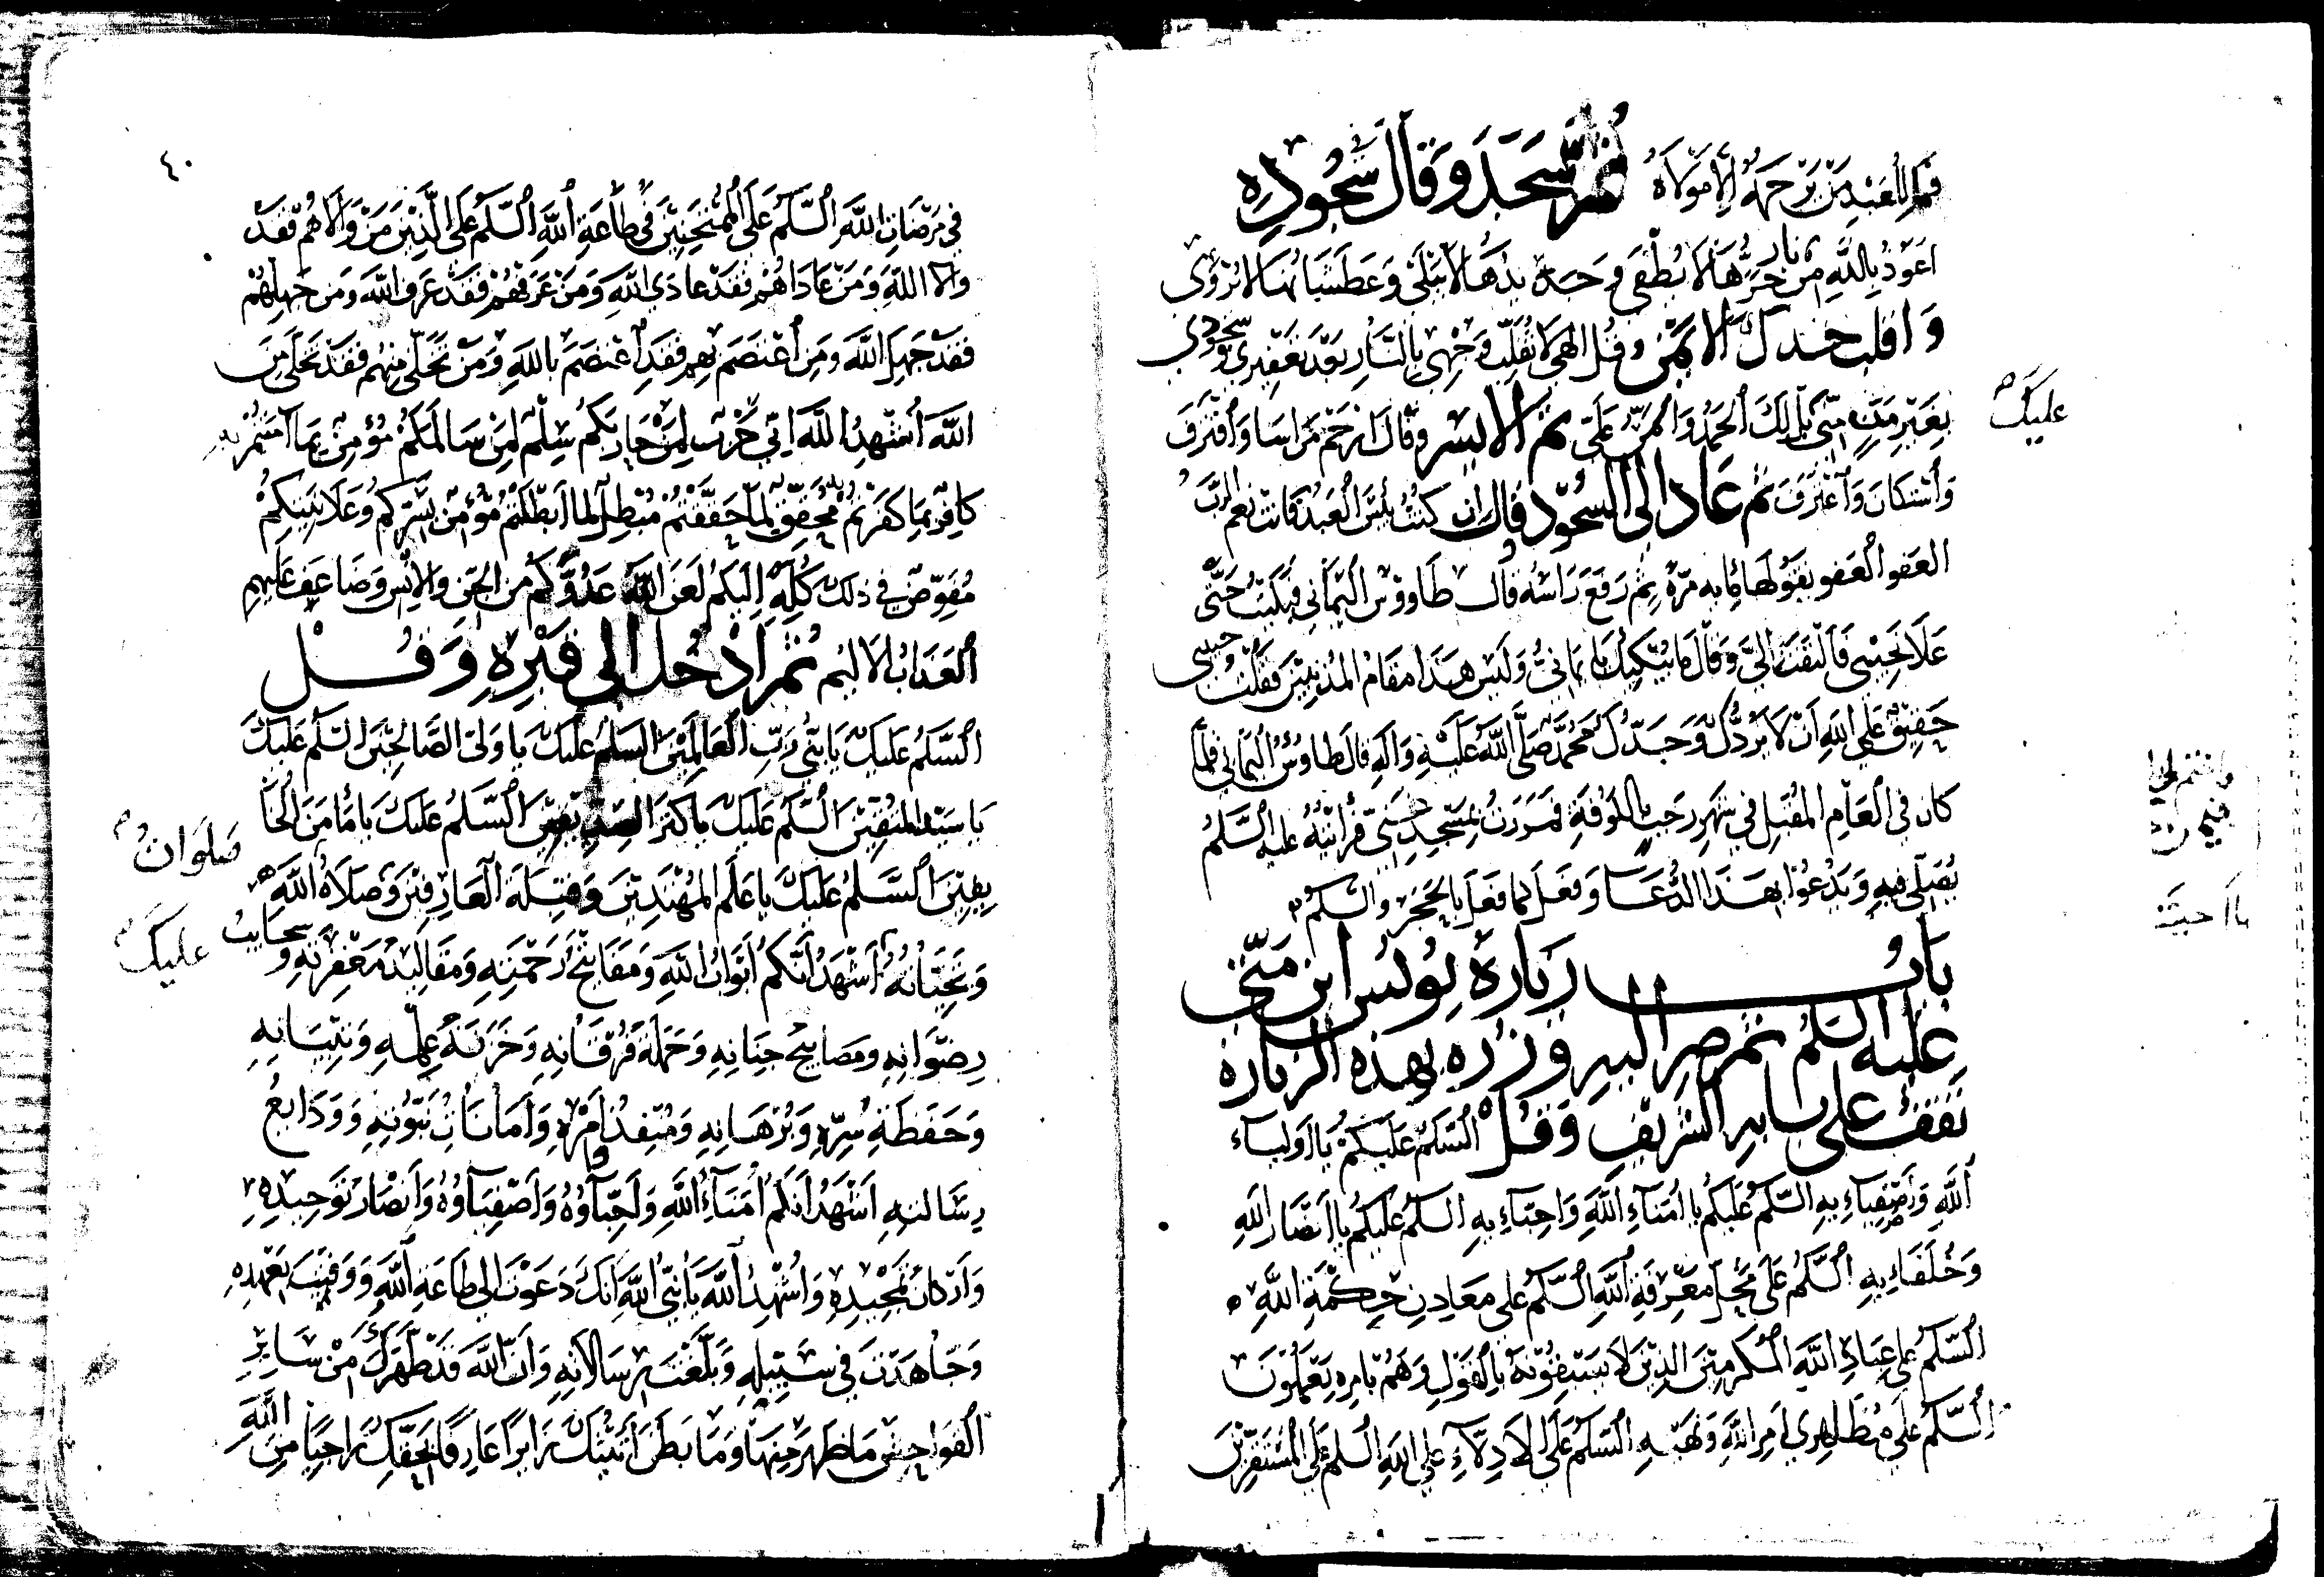 فمن للعبد من يرحمه إلا مولاه ثم سجد وقال في سجوده
اعوذ بالله من نار حرها لا يطفى وجديدها لا يبلى وعطشانها لا يروى
واقلب خدك الايمن وقل الهي لا تقلب وجهي بالنار بعد تعفيري وسجودي
بغير من مني بل لك الحمد والمن علي ثم الايسر وقال ارحم من اسا واقترف
واستكان واعترف ثم عاد الى السجود قال ان كنت بئس العبد فانت نعم الرب
العفو العفو يقولها مايه مرة ثم رفع راسه قال طاووس اليماني فبكيت حتى
علا نحيبي فالتفت الي وقال ما يبكيك يا يماني وليس هذا مقام المذنبين فقلت حبيبي
حقيق على الله أن لا يردك وجدك محمد صلى الله عليه واله قال طاوس اليماني فلما
كان في العام المقبل في شهر رجب بالكوفة فمررت بمسجد غني فرأيته عليه السلام
يصلي فيه ويدعوا بهذا الدعا وفعل كما فعل بالحجر والسلم
باب زيارة يونس ابن متى
عليه السلم ثم صر اليه وزره بهذه الزيارة
تقف على بابه الشريف وقل السلم عليكم يا اولياء
الله واصفياءيه السلم عليكم يا امناء الله واحباءيه السلم عليكم يا انصار الله
وخلفاءيه السلم على محل معرفة الله السلم على معادن حكمة الله
السلم على عباد الله المكرمين الذين لا يسبقونه بالقول وهم بامره يعملون
السلم على مظاهري امر الله ونهيه السلم على الادلاء على الله السلم على المستقرين
عليك
٤٠
في مرضات الله السلم على الممتحنين في طاعة الله السلم على الذين من والاهم فقد
والا الله ومن عاداهم فقد عادي الله ومن عرفهم فقد عرف الله ومن جهلهم
فقد جهل الله ومن اعتصم بهم فقد اعتصم بالله ومن تخلى منهم فقد تخلى من
الله اشهد الله اني حرب لمن حاربكم سلم لمن سالمكم مؤمن بما آمنتم به
كافر بما كفرتم به محقق لما حققتم مبطل لما ابطلتم مؤمن بسركم وعلانيتكم
مفوض في ذلك كله اليكم لعن الله عدوكم من الجن والانس وضاعف عليهم
العذاب الاليم ثم ادخل الى قبره وقل
السلم عليك يا نبي رب العالمين السلم عليك يا ولي الصالحين السلم عليك
يا سيد المتقين السلم عليك يا كنز السلم عليك يا مأمن الخا
يفين السلم عليك يا علم المهتدين وقبلة العارفين وصلاة الله
وتحياته اشهد أنكم أبواب الله ومفاتيح رحمته ومقاليد مغفرته وسحايب
رضوانه ومصابيح جنانه وحملة فرقانه وخزنة علمه وتبيانه
وحفظة سره وبرهانه ومنفذ امره وامانات نبوته وودايع
رسالته اشهد أنكم أمناء الله واحباؤه واصفياؤه وانصار توحيده
واركان تمجيده واشهد الله يا نبي الله انك دعوت الى طاعة الله ووفيت بعهده
وجاهدت في سبيله وبلغت رسالاته وان الله قد طهرك من ساير
الفواحش ما ظهر منها وما بطن أتيتك زايرا عارفا بحقك راجيا من الله
صلوات
عليك